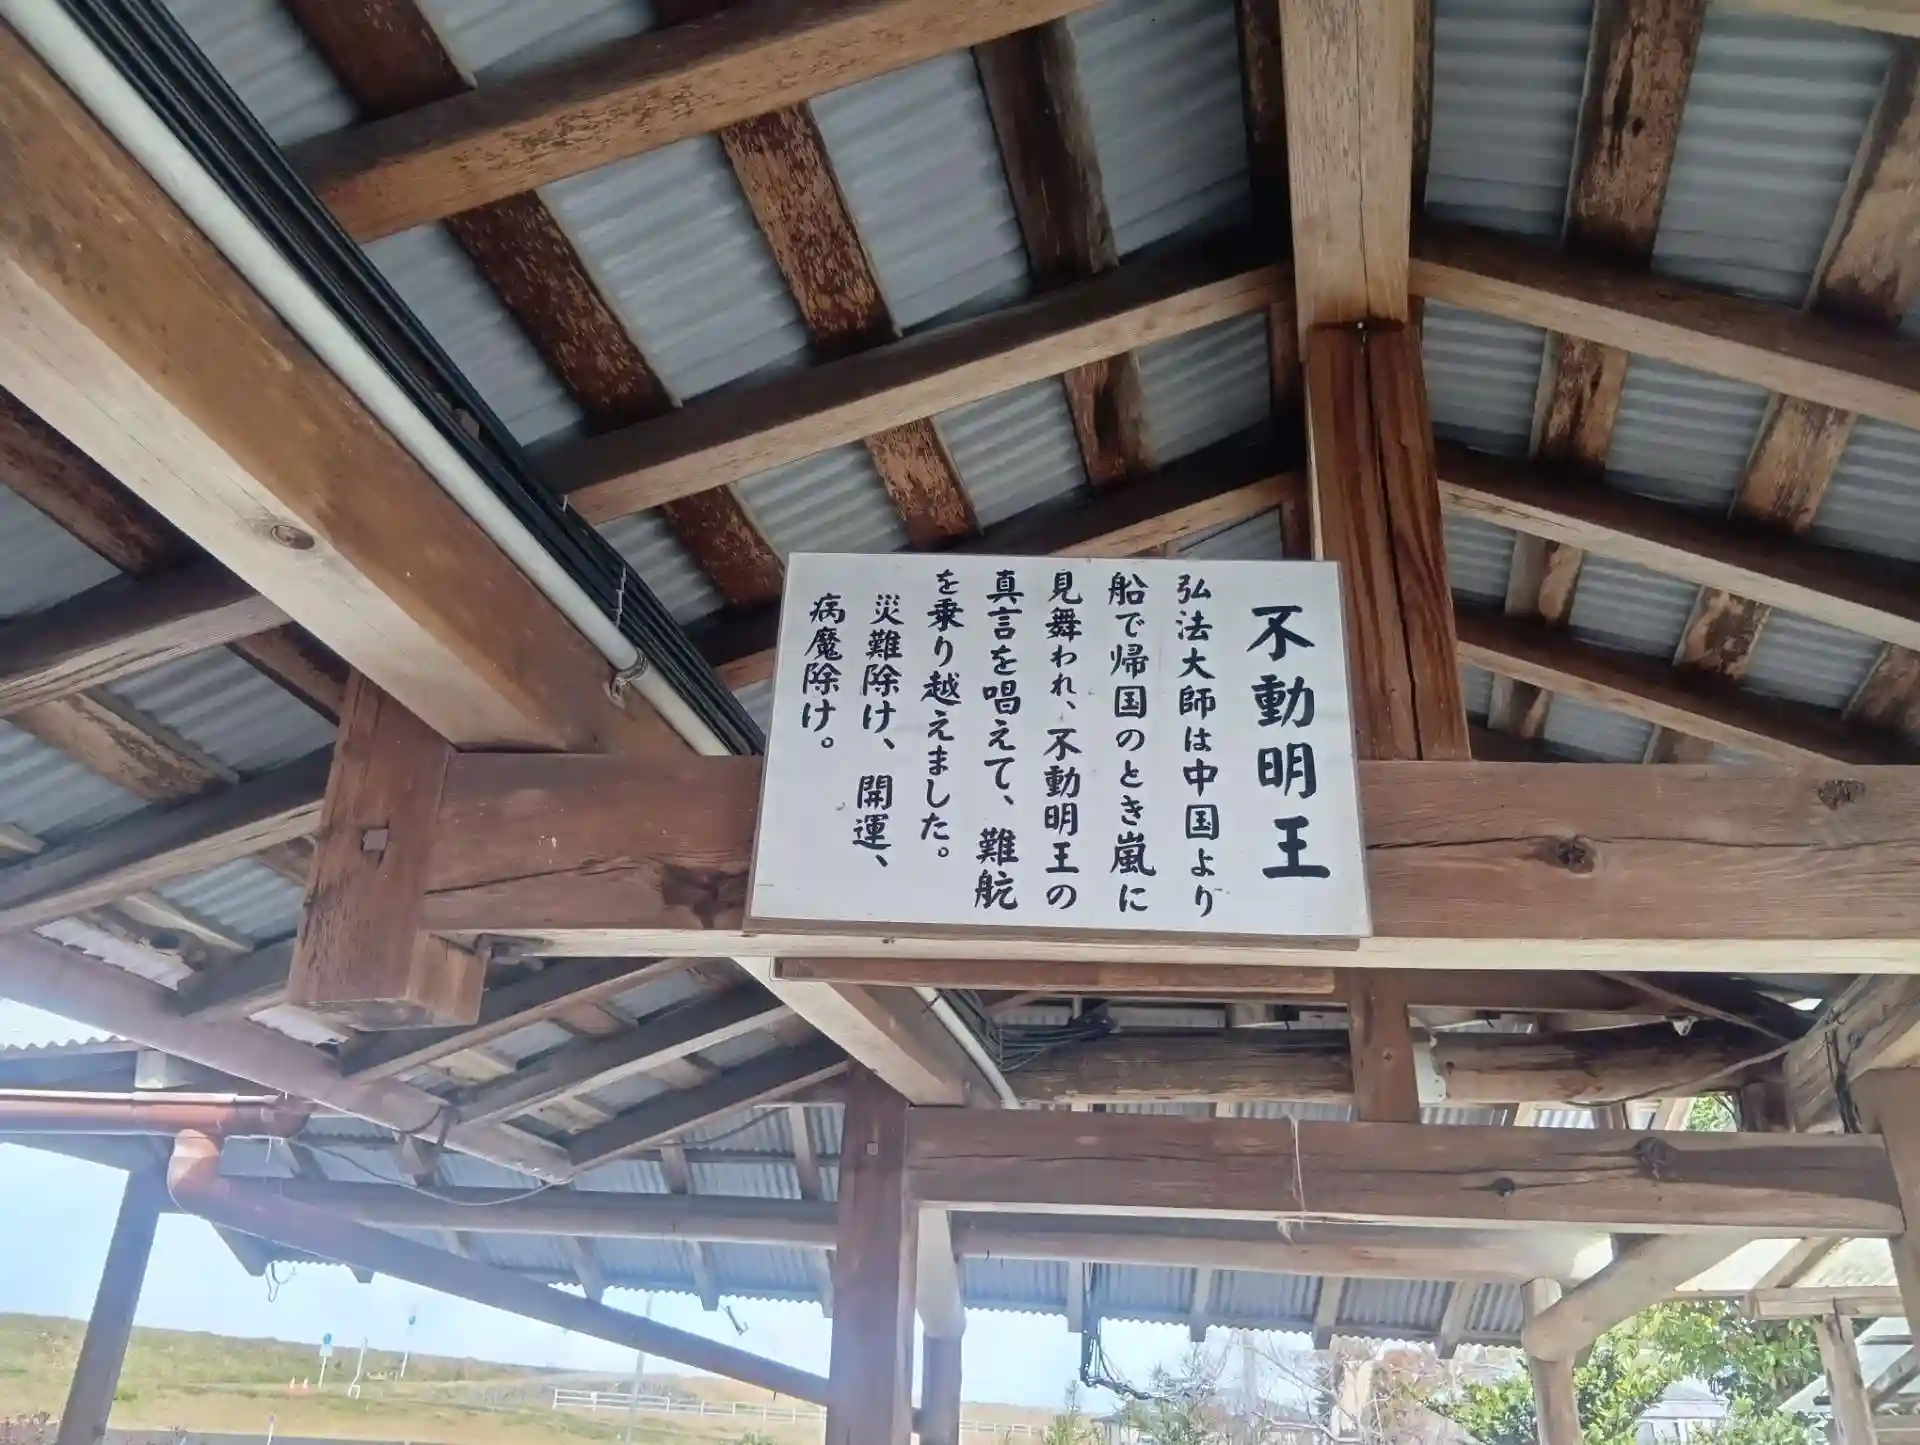 不動明王
弘法大師は中国より
船で帰国のとき嵐に
見舞われ、不動明王の
真言を唱えて、難航
を乗り越えました。
災難除け、開運、
病魔除け。